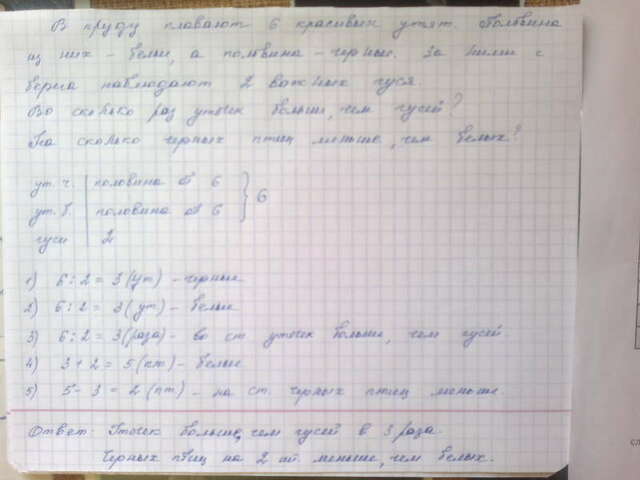 В пруду плавают 6 красивых утят. Половина
из них - белые, а половина - черные. За ними с
берега наблюдают 2 важных гуся.
Во сколько раз уточек больше, чем гусей?
На сколько черных птиц меньше, чем белых?
ут. ч. | половина от 6 } 6
ут. б. | половина от 6
гуси | 2
1) 6 : 2 = 3 (ут) - черные
2) 6 : 2 = 3 (ут) - белые
3) 6 : 2 = 3 (раза) - во ст. уточек больше, чем гусей
4) 3 + 2 = 5 (пт) - белые
5) 5 - 3 = 2 (пт) - на ст. черных птиц меньше.
Ответ: Уточек больше, чем гусей в 3 раза.
Черных птиц на 2 меньше, чем белых.